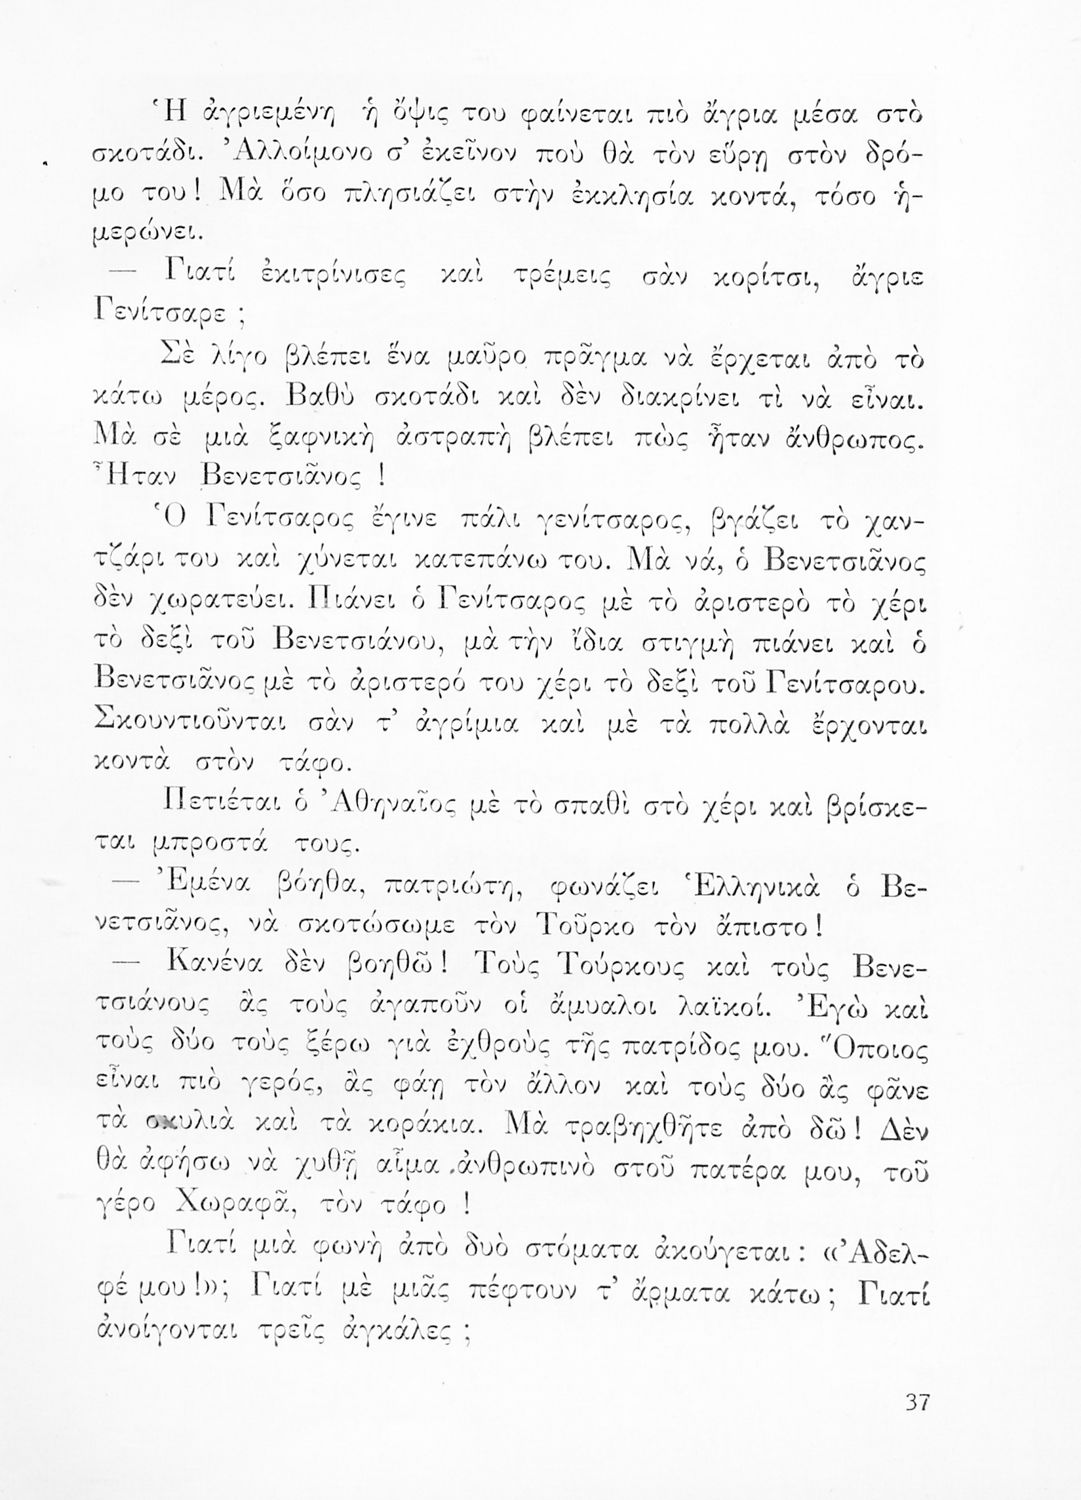 Ἡ ἀγριεμένη ἡ ὄψις του φαίνεται πιὸ ἄγρια μέσα στὸ
σκοτάδι. Ἀλλοίμονο σ’ ἐκεῖνον ποὺ θὰ τὸν εὕρῃ στὸν δρό-
μο του! Μὰ ὅσο πλησιάζει στὴν ἐκκλησία κοντά, τόσο ἡ-
μερώνει.
— Γιατί ἐκιτρίνισες καὶ τρέμεις σὰν κορίτσι, ἄγριε
Γενίτσαρε ;
Σὲ λίγο βλέπει ἕνα μαῦρο πρᾶγμα νὰ ἔρχεται ἀπὸ τὸ
κάτω μέρος. Βαθὺ σκοτάδι καὶ δὲν διακρίνει τὶ νὰ εἶναι.
Μὰ σὲ μιὰ ξαφνικὴ ἀστραπὴ βλέπει πὼς ἦταν ἄνθρωπος.
Ἦταν Βενετσιᾶνος !
Ὁ Γενίτσαρος ἔγινε πάλι γενίτσαρος, βγάζει τὸ χαν-
τζάρι του καὶ χύνεται κατεπάνω του. Μὰ νά, ὁ Βενετσιᾶνος
δὲν χωρατεύει. Πιάνει ὁ Γενίτσαρος μὲ τὸ ἀριστερὸ τὸ χέρι
τὸ δεξὶ τοῦ Βενετσιάνου, μὰ τὴν ἴδια στιγμὴ πιάνει καὶ ὁ
Βενετσιᾶνος μὲ τὸ ἀριστερό του χέρι τὸ δεξὶ τοῦ Γενίτσαρου.
Σκουντιοῦνται σὰν τ’ ἀγρίμια καὶ μὲ τὰ πολλὰ ἔρχονται
κοντὰ στὸν τάφο.
Πετιέται ὁ Ἀθηναῖος μὲ τὸ σπαθὶ στὸ χέρι καὶ βρίσκε-
ται μπροστά τους.
— Ἐμένα βόηθα, πατριώτη, φωνάζει Ἑλληνικὰ ὁ Βε-
νετσιᾶνος, νὰ σκοτώσωμε τὸν Τοῦρκο τὸν ἄπιστο!
— Κανένα δὲν βοηθῶ! Τοὺς Τούρκους καὶ τοὺς Βενε-
τσιάνους ἂς τοὺς ἀγαποῦν οἱ ἄμυαλοι λαϊκοί. Ἐγὼ καὶ
τοὺς δύο τοὺς ξέρω γιὰ ἐχθροὺς τῆς πατρίδος μου. Ὅποιος
εἶναι πιὸ γερός, ἂς φάῃ τὸν ἄλλον καὶ τοὺς δύο ἂς φᾶνε
τὰ σκυλιὰ καὶ τὰ κοράκια. Μὰ τραβηχθῆτε ἀπὸ δῶ! Δὲν
θὰ ἀφήσω νὰ χυθῇ αἷμα ἀνθρωπινὸ στοῦ πατέρα μου, τοῦ
γέρο Χωραφᾶ, τὸν τάφο !
Γιατί μιὰ φωνὴ ἀπὸ δυὸ στόματα ἀκούγεται : «Ἀδελ-
φέ μου!»; Γιατί μὲ μιᾶς πέφτουν τ’ ἄρματα κάτω; Γιατί
ἀνοίγονται τρεῖς ἀγκάλες ;
37